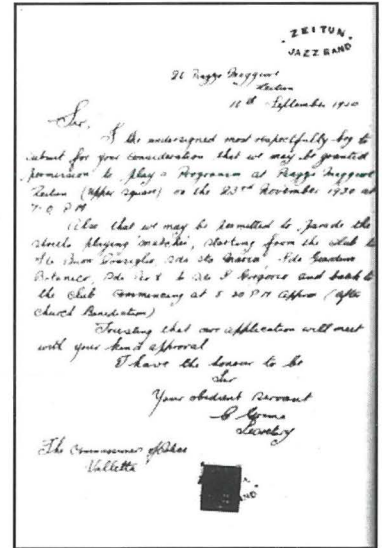 ZEITUN
JAZZ BAND
26 Piazza Maggiore
Zeitun
18th September 1930
Sir,
I the undersigned most respectfully beg to
submit for your consideration that we may be granted
permission to play a Programm at Piazza Maggiore
Zeitun (Upper Square) on the 23rd November 1930 at
7.0 P.M.
Also that we may be permitted to parade the
streets playing marches, starting from the Club to
Buon Consiglio, Sda Sta Maria, Sda Giardino
Botanico, Sda S Gregorio and back to
the Club Commencing at 5 30 P.M approx (after
Church Benediction)
Trusting that our application will meet
with your kind approval
I have the honour to be
Sir
Your obedient servant
Secretary
The Commissioner of Police
Valletta